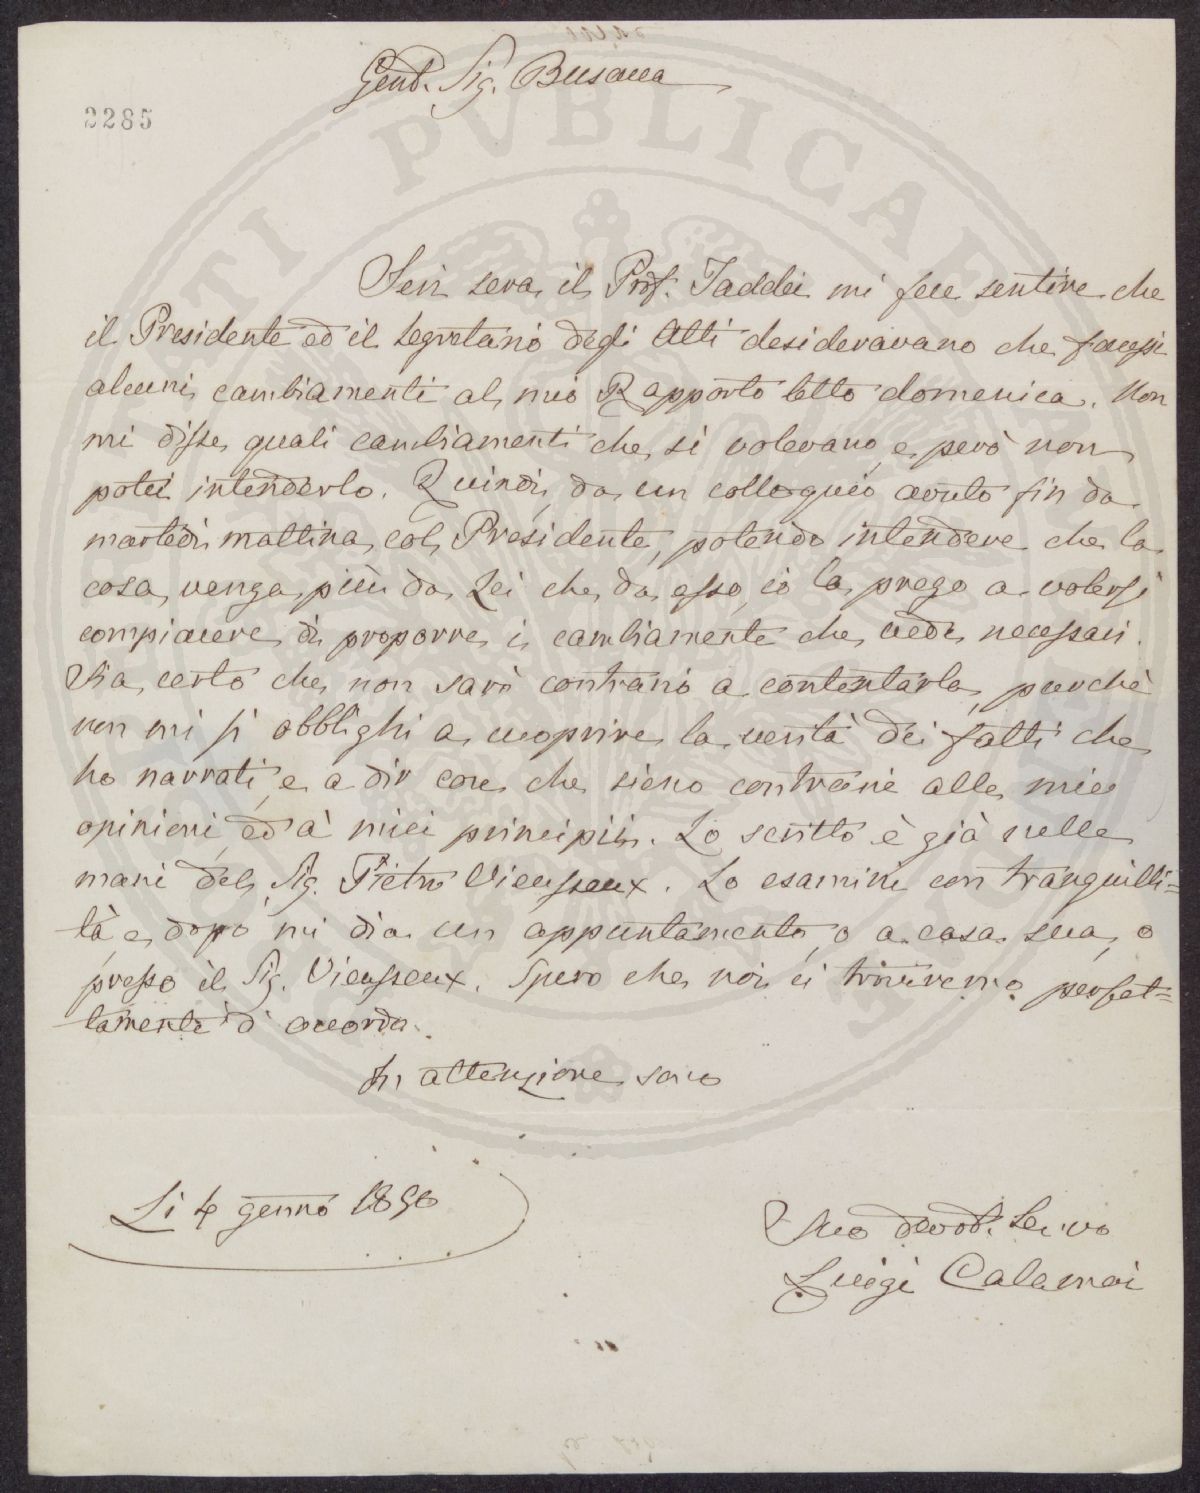 Gent. Sig. Busacca
2285
Ieri sera il Prof. Taddei mi fece sentire che
il Presidente ed il Segretario degli Atti desideravano che facessi
alcuni cambiamenti al mio Rapporto letto domenica. Non
mi disse quali cambiamenti che si volevano, e però non
potei intenderlo. Quindi, da un colloquio avuto fin da
martedì mattina col Presidente, potendo intendere che la
cosa venga più da Lei che da esso, io la prego a volersi
compiacere di proporre i cambiamenti che vede necessari.
Sia certo che non sarò contrario a contentarla, purchè
non mi si obblighi a ricoprire la verità dei fatti che
ho narrati, e a dir cose che sieno contrarie alle mie
opinioni, ed a' miei principii. Lo scritto è già nelle
mani del Sig. Pietro Vieusseux. Lo esamini con tranquilli=
tà e dopo mi dia un appuntamento, o a casa sua, o
presso il Sig. Vieusseux. Spero che noi ci troveremo perfet=
tamente d'accordo.
In attenzione sono
Li 4 genno 1850
Suo devot. Servo
Luigi Calamai
PVBLICAE